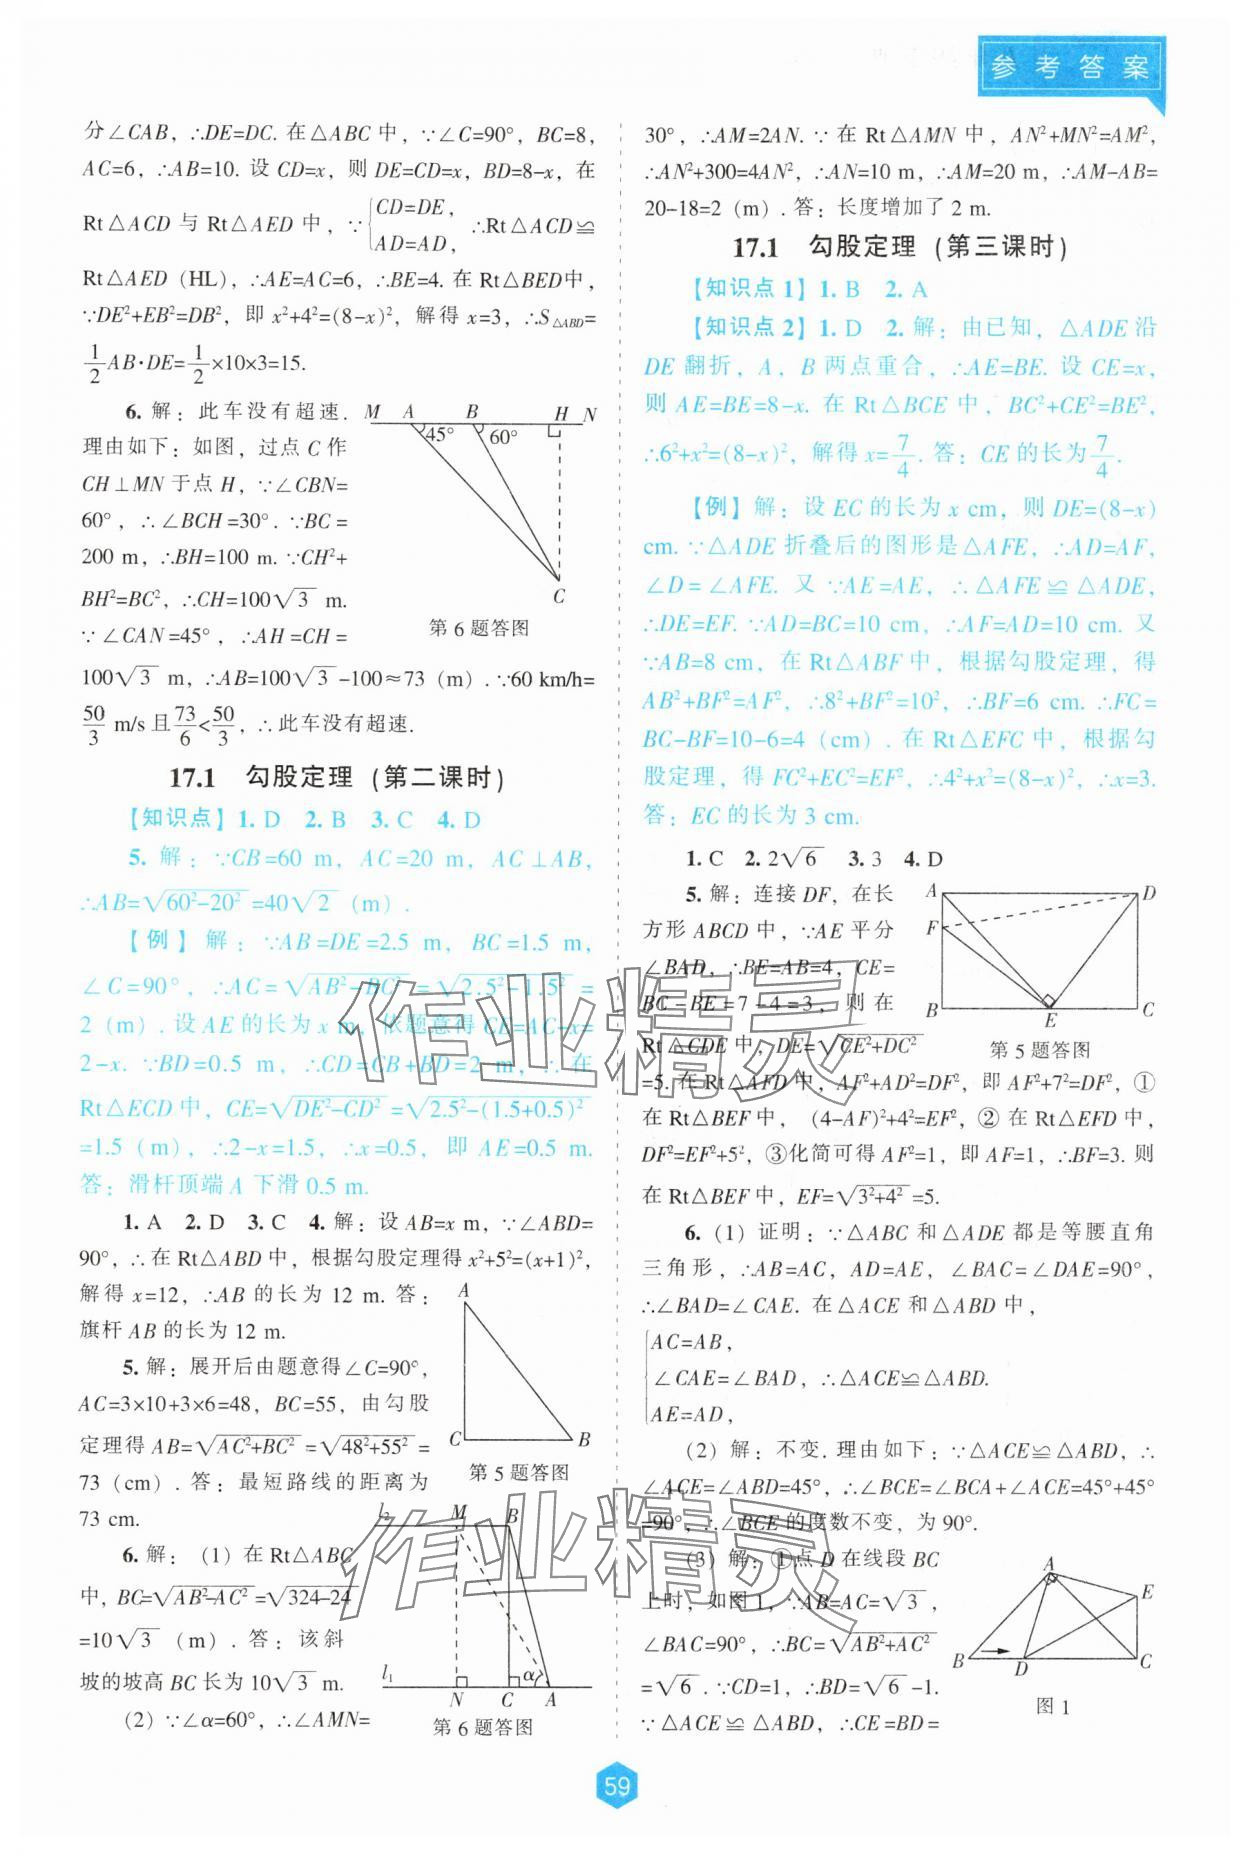 参考答案
分∠CAB，∴DE=DC. 在△ABC中，∵∠C=90°，BC=8，
AC=6，∴AB=10. 设 CD=x，则 DE=CD=x，BD=8-x，在
Rt△ACD 与 Rt△AED 中，∵{CD=DE，AD=AD， ∴Rt△ACD≌
Rt△AED（HL），∴AE=AC=6，∴BE=4. 在 Rt△BED中，
∵DE²+EB²=DB²，即 x²+4²=(8-x)²，解得 x=3，∴S△ABD=
1/2 AB·DE=1/2×10×3=15.
6. 解：此车没有超速.
理由如下：如图，过点 C 作
CH⊥MN 于点 H，∵∠CBN=
60°，∴∠BCH=30°. ∵BC=
200 m，∴BH=100 m. ∵CH²+
BH²=BC²，∴CH=100√3 m.
∵∠CAN=45°，∴AH=CH=
M A B H N
45° 60°
C
第 6 题答图
100√3 m，∴AB=100√3-100≈73（m）. ∵60 km/h=
50/3 m/s 且 73/6<50/3，∴此车没有超速.
17.1 勾股定理（第二课时）
【知识点】1. D 2. B 3. C 4. D
5. 解：∵CB=60 m，AC=20 m，AC⊥AB，
∴AB=√(60²-20²)=40√2（m）.
【例】解：∵AB=DE=2.5 m，BC=1.5 m，
∠C=90°，∴AC=√(AB²-BC²)=√(2.5²-1.5²)=
2（m）. 设 AE 的长为 x m，依题意得 CE=AC-x=
2-x. ∵BD=0.5 m，∴CD=CB+BD=2 m. ∴在
Rt△ECD 中，CE=√(DE²-CD²)=√(2.5²-(1.5+0.5)²)
=1.5（m），∴2-x=1.5，∴x=0.5，即 AE=0.5 m.
答：滑杆顶端 A 下滑 0.5 m.
1. A 2. D 3. C 4. 解：设 AB=x m，∵∠ABD=
90°，∴在 Rt△ABD 中，根据勾股定理得 x²+5²=(x+1)²，
解得 x=12，∴AB 的长为 12 m. 答：
旗杆 AB 的长为 12 m.
5. 解：展开后由题意得∠C=90°，
AC=3×10+3×6=48，BC=55，由勾股
定理得 AB=√(AC²+BC²)=√(48²+55²)=
73（cm）. 答：最短路线的距离为
73 cm.
A
C B
第 5 题答图
6. 解：（1）在 Rt△ABC
中，BC=√(AB²-AC²)=√(324-24)
=10√3（m）. 答：该斜
坡的坡高 BC 长为 10√3 m.
（2）∵∠α=60°，∴∠AMN=
l₂ M B
l₁ α
N C A
第 6 题答图
30°，∴AM=2AN. ∵在 Rt△AMN 中，AN²+MN²=AM²，
∴AN²+300=4AN²，∴AN=10 m，∴AM=20 m，∴AM-AB=
20-18=2（m）. 答：长度增加了 2 m.
17.1 勾股定理（第三课时）
【知识点 1】1. B 2. A
【知识点 2】1. D 2. 解：由已知，△ADE 沿
DE 翻折，A，B 两点重合，∴AE=BE. 设 CE=x，
则 AE=BE=8-x. 在 Rt△BCE 中，BC²+CE²=BE²，
∴6²+x²=(8-x)²，解得 x=7/4. 答：CE 的长为 7/4.
【例】解：设 EC 的长为 x cm，则 DE=(8-x)
cm. ∵△ADE 折叠后的图形是△AFE，∴AD=AF，
∠D=∠AFE. 又∵AE=AE，∴△AFE≌△ADE，
∴DE=EF. ∵AD=BC=10 cm，∴AF=AD=10 cm. 又
∵AB=8 cm，在 Rt△ABF 中，根据勾股定理，得
AB²+BF²=AF²，∴8²+BF²=10²，∴BF=6 cm. ∴FC=
BC-BF=10-6=4（cm）. 在 Rt△EFC 中，根据勾
股定理，得 FC²+EC²=EF²，∴4²+x²=(8-x)²，∴x=3.
答：EC 的长为 3 cm.
1. C 2. 2√6 3. 3 4. D
5. 解：连接 DF，在长
方形 ABCD 中，∵AE 平分
∠BAD，∴BE=AB=4，CE=
BC-BE=7-4=3，则在
Rt△CDE 中，DE=√(CE²+DC²)
A D
F
B E C
第 5 题答图
=5. 在 Rt△AFD 中，AF²+AD²=DF²，即 AF²+7²=DF²，①
在 Rt△BEF 中，（4-AF)²+4²=EF²，② 在 Rt△EFD 中，
DF²=EF²+5²，③化简可得 AF²=1，即 AF=1，∴BF=3. 则
在 Rt△BEF 中，EF=√(3²+4²)=5.
6.（1）证明：∵△ABC 和△ADE 都是等腰直角
三角形，∴AB=AC，AD=AE，∠BAC=∠DAE=90°，
∴∠BAD=∠CAE. 在△ACE 和△ABD 中，
AC=AB，
∠CAE=∠BAD，∴△ACE≌△ABD.
AE=AD，
（2）解：不变. 理由如下：∵△ACE≌△ABD，∴
∠ACE=∠ABD=45°，∴∠BCE=∠BCA+∠ACE=45°+45°
=90°，∴∠BCE 的度数不变，为 90°.
（3）解：①点 D 在线段 BC
上时，如图 1，∵AB=AC=√3，
∠BAC=90°，∴BC=√(AB²+AC²)
=√6. ∵CD=1，∴BD=√6-1.
∵△ACE≌△ABD，∴CE=BD=
A
E
B D C
图 1
作业精灵
作业精灵
59